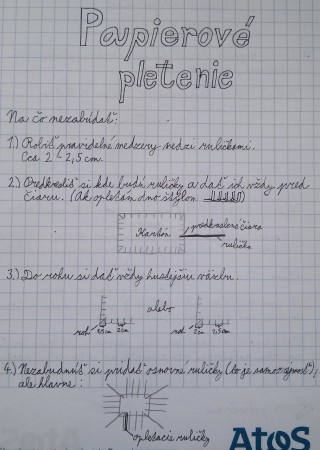 Papierové
pletenie
Na čo nezabúdať:
1.) Robiť pravidelné medzery medzi ruličkami.
Cca 2 - 2,5 cm.
2.) Predkresliť si kde budú ruličky a dať ich vždy pred
čiaru. (Ak opletám dno štýlom
Kartón
predkreslená čiara
rulička
3.) Do rohu si dať vždy hustejšiu väzbu.
alebo
roh
1,5cm
2cm
roh
2cm
2,5cm
4.) Nezabudnúť si pridať osnovné ruličky (to je samozrejmosť),
ale hlavne:
opletacie ruličky
Atos